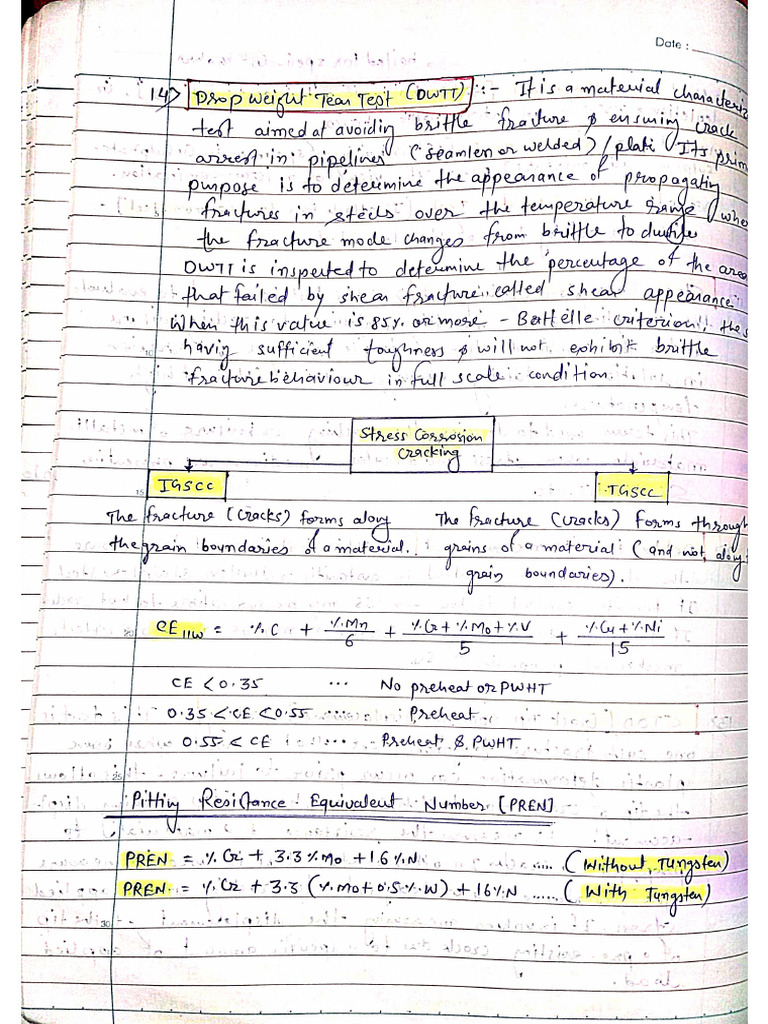 Date :
14> Drop Weight Tear Test (DWTT) :- It is a material characteriz
test aimed at avoiding brittle fracture & ensuring crack
arrest in pipelines (seamless or welded) / plate Its prim
purpose is to determine the appearance of propagating
fractures in steels over the temperature range (whe
the fracture mode changes from brittle to ductile
DWTT is inspected to determine the percentage of the area
that failed by shear fracture called shear appearance
When this value is 85% or more - Battelle criterion, the s
having sufficient toughness & will not exhibit brittle
fracture behaviour in full scale condition.
Stress Corrosion
Cracking
IGSCC TGSCC
The fracture (cracks) forms along The fracture (cracks) forms through
the grain boundaries of a material. grains of a material (and not along
grain boundaries).
CE IIW = %C + %Mn/6 + %Cr+%Mo+%V/5 + %Cu+%Ni/15
CE < 0.35 ... No preheat or PWHT
0.35 < CE < 0.55 ...... Preheat
0.55 < CE ... Preheat & PWHT
Pitting Resistance Equivalent Number [PREN]
PREN = %Cr + 3.3%Mo + 16%N ...... (Without Tungsten)
PREN = %Cr + 3.3 (%Mo+0.5%W) + 16%N ..... (With Tungsten)